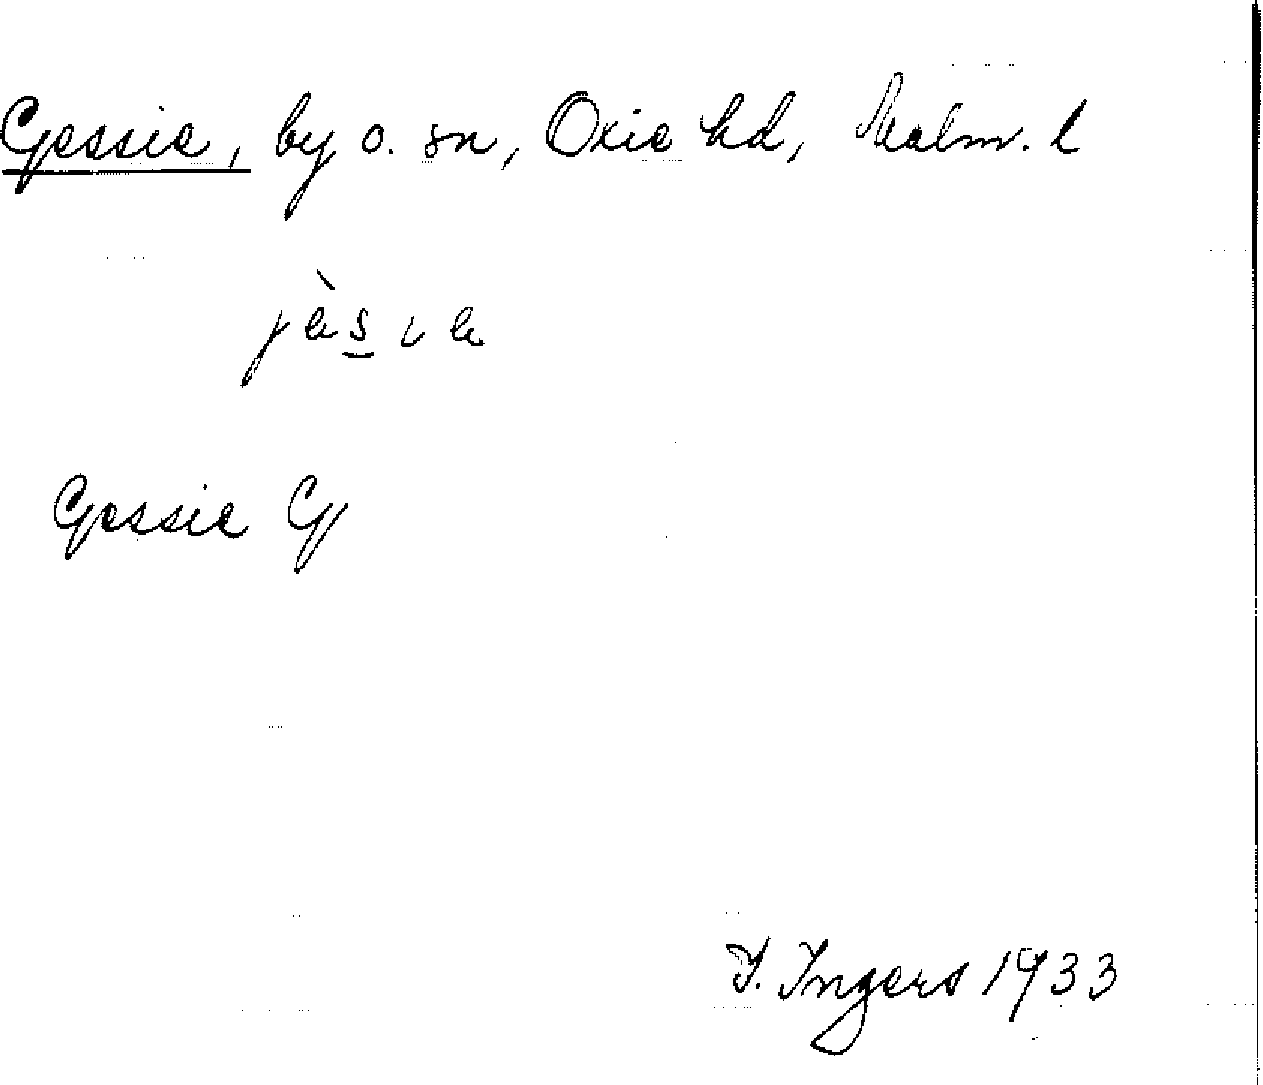 Gessie, by o. sn, Oxie hd, Malm. l
jàsıa
Gessie G
I. Ingers 1933